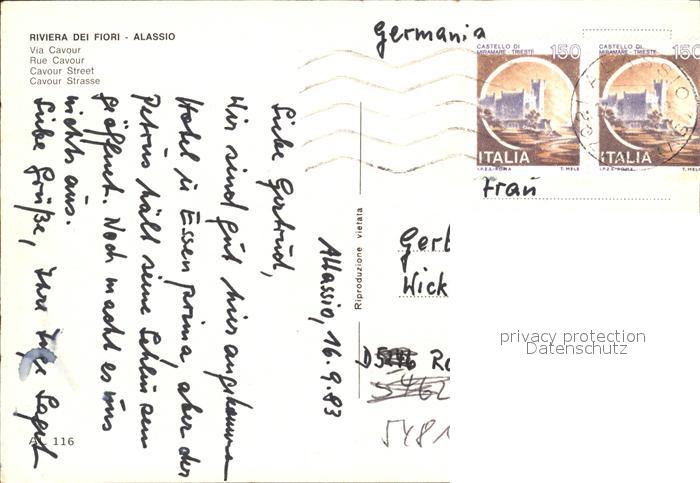 RIVIERA DEI FIORI - ALASSIO
Via Cavour
Rue Cavour
Cavour Street
Cavour Strasse
Germania
CASTELLO DI
MIRAMARE - TRIESTE
150
ITALIA
I.P.Z.S. - ROMA
T. MELE
CASTELLO DI
MIRAMARE - TRIESTE
150
ITALIA
I.P.Z.S. - ROMA
T. MELE
Alassio, 16.9.83
Liebe Gertrud,
Wir sind gut hier angekommen
Hotel in Essen prima, aber der
Petrus hält seine Schleusen
geöffnet. Noch macht es uns
nichts aus.
Liebe Grüße, Ihre
Riproduzione vietata
Frau
Gert
Wick
D
5462
5481
privacy protection
Datenschutz
AL 116